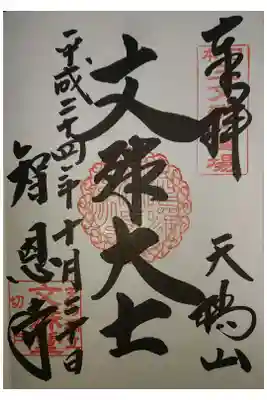 奉拝
天橋山
文殊大士
平成二十四年十月二十日
智恩寺